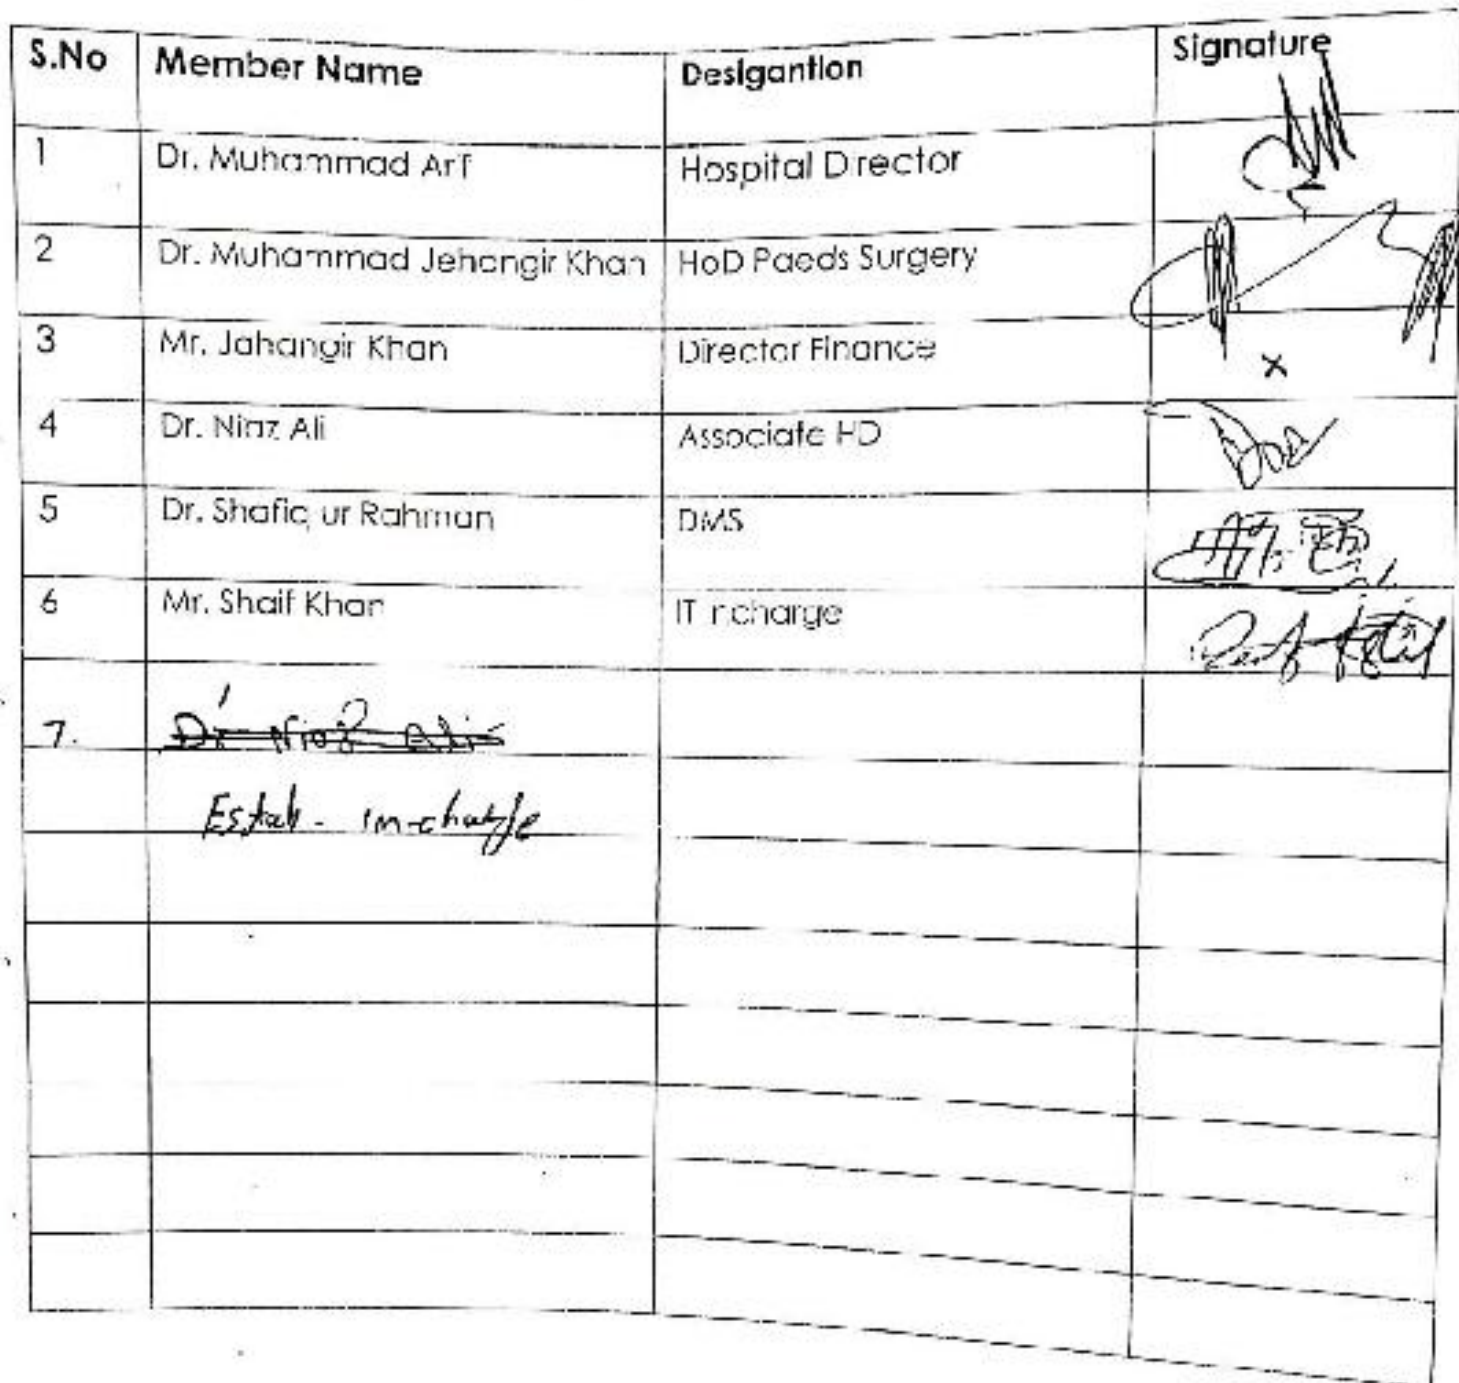 S.No Member Name Desigantion Signature
1 Dr. Muhammad Arif Hospital Director
2 Dr. Muhammad Jehangir Khan HoD Paeds Surgery
3 Mr. Jahangir Khan Director Finance x
4 Dr. Niaz Ali Associate HD
5 Dr. Shafiq ur Rahman DMS
6 Mr. Shaif Khan IT Incharge
7. Dr Niaz Ali
Estab - in-charge